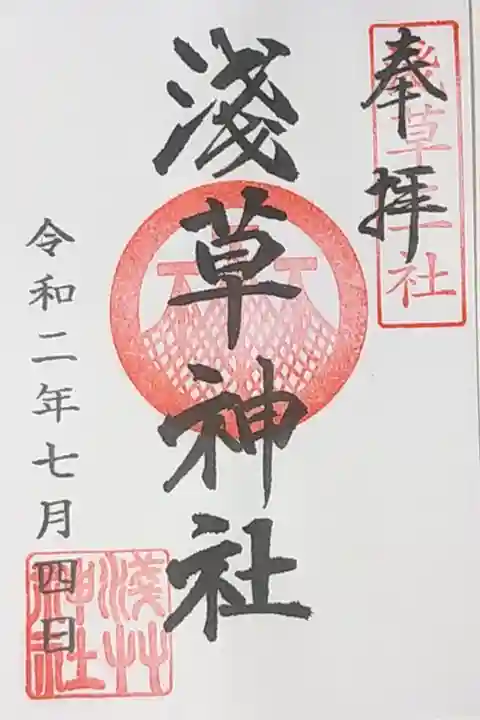 奉拝
淺草三社
淺草神社
令和二年七月四日
淺草神社